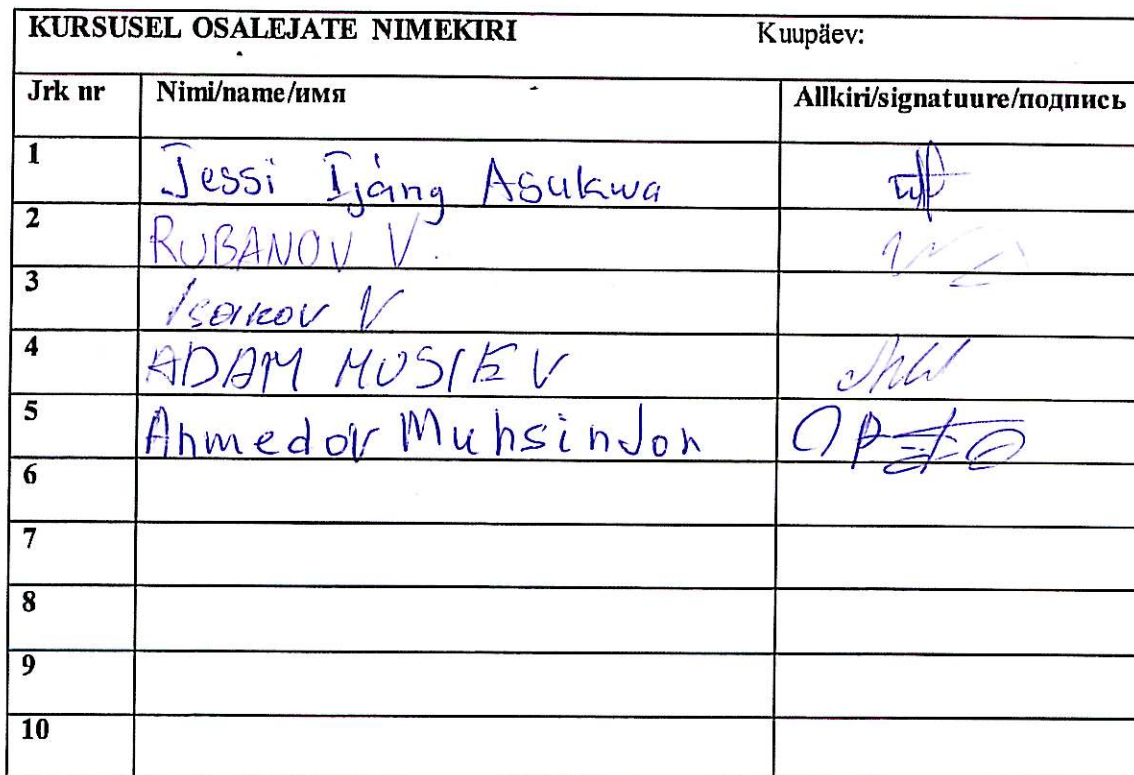 KURSUSEL OSALEJATE NIMEKIRI Kuupäev:
Jrk nr Nimi/name/имя Allkiri/signatuure/подпись
1 Jessi Ijáng Asukwa
2 RUBANOV V.
3 Isakov V
4 ADAM MUSIEV
5 Ahmedov MuhsinJon
6
7
8
9
10